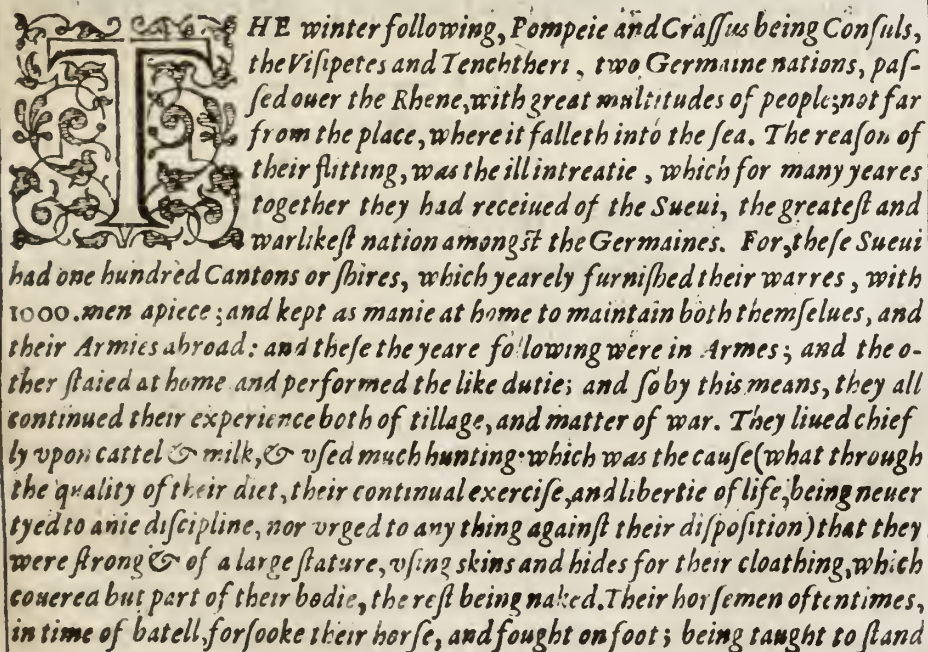 THE winter following, Pompeie and Craſſus being Conſuls,
the Viſipetes and Tenchtheri, two Germaine nations, paſ-
ſed ouer the Rhene, with great multitudes of people; not far
from the place, where it falleth into the ſea. The reaſon of
their flitting, was the ill intreatie, which for many yeares
together they had receiued of the Sueui, the greateſt and
warlikeſt nation amongſt the Germaines. For, theſe Sueui
had one hundred Cantons or ſhires, which yearely furniſhed their warres, with
1000. men apiece; and kept as manie at home to maintain both themſelues, and
their Armies abroad: and theſe the yeare following were in Armes; and the o-
ther ſtaied at home and performed the like dutie; and ſo by this means, they all
continued their experience both of tillage, and matter of war. They liued chief
ly vpon cattel & milk, & vſed much hunting: which was the cauſe (what through
the quality of their diet, their continual exerciſe, and libertie of life, being neuer
tyed to anie diſcipline, nor vrged to any thing againſt their diſpoſition) that they
were ſtrong & of a large ſtature, vſing skins and hides for their cloathing, which
couered but part of their bodie, the reſt being naked. Their horſemen oftentimes,
in time of batell, forſooke their horſe, and fought on foot; being taught to ſtand